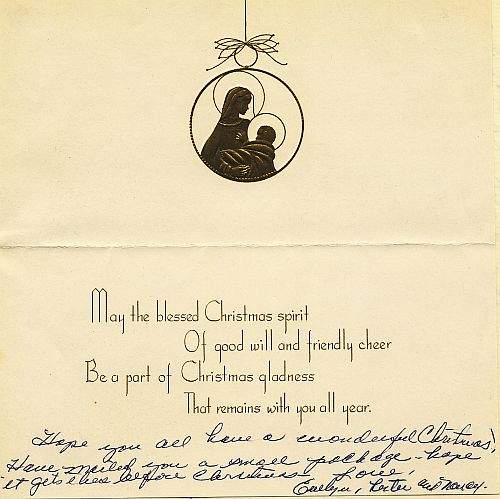 May the blessed Christmas spirit
Of good will and friendly cheer
Be a part of Christmas gladness
That remains with you all year.
Hope you all have a wonderful Christmas,
Have mailed you a small package - hope
it gets there before Christmas. Love,
Evelyn, and Nancy.